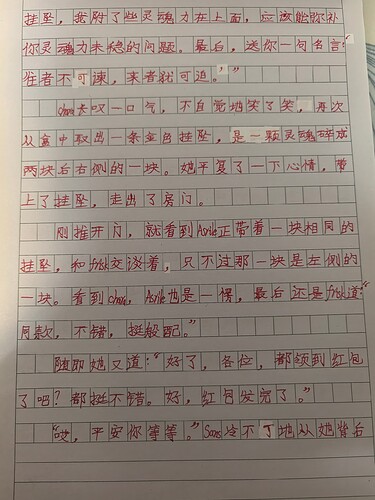 挂坠，我附了些灵魂力在上面，应该能弥补
你灵魂力未稳的问题。最后，送你一句名言：
往者不可谏，来者就可追。”
chara卡叹一口气，不自觉地笑了笑，再次
从盒中取出一条金色挂坠，是一颗灵魂碎成
两块后右侧的一块。她平复了一下心情，带
上了挂坠，走出了房门。
刚推开门，就看到Asriel正带着一块相同的
挂坠，和frisk交谈着，只不过那一块是左侧的
一块。看到chara，Asriel也是一愣，最后还是frisk道：“
同款，不错，挺般配。”
随即她又道：“好了，各位，都领到红包
了吧？都挺不错。好，红包发完了。”
“哎，平安你等等。”Sans冷不丁地从她背后